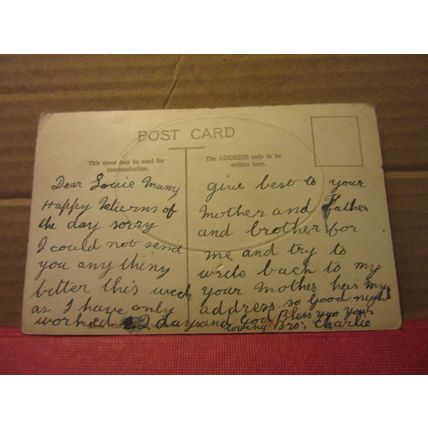 POST CARD
This space may be used for
communication.
The ADDRESS only to be
written here.
Dear Louie Many
Happy Returns of
the day sorry
I could not send
you any thing
better this week
as I have only
worked 2 days and
give best to your
Mother and Father
and brother for
me and try to
write back to my
your Mother has my
address so Good night
God Bless you your
loving Bro: Charlie